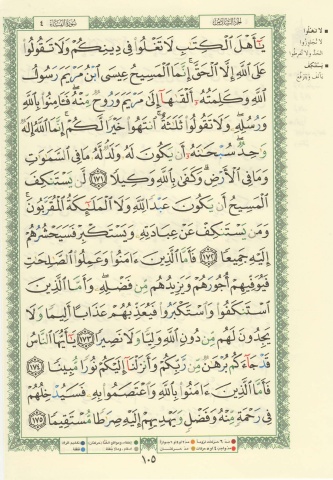 سُورَةُ النِّسَاءِ ٤
الجُزءُ السَّادِسُ
يَٰٓأَهْلَ ٱلْكِتَٰبِ لَا تَغْلُوا۟ فِى دِينِكُمْ وَلَا تَقُولُوا۟
عَلَى ٱللَّهِ إِلَّا ٱلْحَقَّ ۚ إِنَّمَا ٱلْمَسِيحُ عِيسَى ٱبْنُ مَرْيَمَ رَسُولُ
ٱللَّهِ وَكَلِمَتُهُۥٓ أَلْقَىٰهَآ إِلَىٰ مَرْيَمَ وَرُوحٌ مِّنْهُ ۖ فَـَٔامِنُوا۟ بِٱللَّهِ
وَرُسُلِهِۦ ۖ وَلَا تَقُولُوا۟ ثَلَٰثَةٌ ۚ ٱنتَهُوا۟ خَيْرًا لَّكُمْ ۚ إِنَّمَا ٱللَّهُ إِلَٰهٌ
وَٰحِدٌ ۖ سُبْحَٰنَهُۥٓ أَن يَكُونَ لَهُۥ وَلَدٌ ۘ لَّهُۥ مَا فِى ٱلسَّمَٰوَٰتِ
وَمَا فِى ٱلْأَرْضِ ۗ وَكَفَىٰ بِٱللَّهِ وَكِيلًا ١٧١ لَّن يَسْتَنكِفَ
ٱلْمَسِيحُ أَن يَكُونَ عَبْدًا لِّلَّهِ وَلَا ٱلْمَلَٰٓئِكَةُ ٱلْمُقَرَّبُونَ ۚ
وَمَن يَسْتَنكِفْ عَنْ عِبَادَتِهِۦ وَيَسْتَكْبِرْ فَسَيَحْشُرُهُمْ
إِلَيْهِ جَمِيعًا ١٧٢ فَأَمَّا ٱلَّذِينَ ءَامَنُوا۟ وَعَمِلُوا۟ ٱلصَّٰلِحَٰتِ
فَيُوَفِّيهِمْ أُجُورَهُمْ وَيَزِيدُهُم مِّن فَضْلِهِۦ ۖ وَأَمَّا ٱلَّذِينَ
ٱسْتَنكَفُوا۟ وَٱسْتَكْبَرُوا۟ فَيُعَذِّبُهُمْ عَذَابًا أَلِيمًا وَلَا
يَجِدُونَ لَهُم مِّن دُونِ ٱللَّهِ وَلِيًّا وَلَا نَصِيرًا ١٧٣ يَٰٓأَيُّهَا ٱلنَّاسُ
قَدْ جَآءَكُم بُرْهَٰنٌ مِّن رَّبِّكُمْ وَأَنزَلْنَآ إِلَيْكُمْ نُورًا مُّبِينًا ١٧٤
فَأَمَّا ٱلَّذِينَ ءَامَنُوا۟ بِٱللَّهِ وَٱعْتَصَمُوا۟ بِهِۦ فَسَيُدْخِلُهُمْ
فِى رَحْمَةٍ مِّنْهُ وَفَضْلٍ وَيَهْدِيهِمْ إِلَيْهِ صِرَٰطًا مُّسْتَقِيمًا ١٧٥
١٠٥
لا تغلوا
لا تجاوزوا
يستنكف